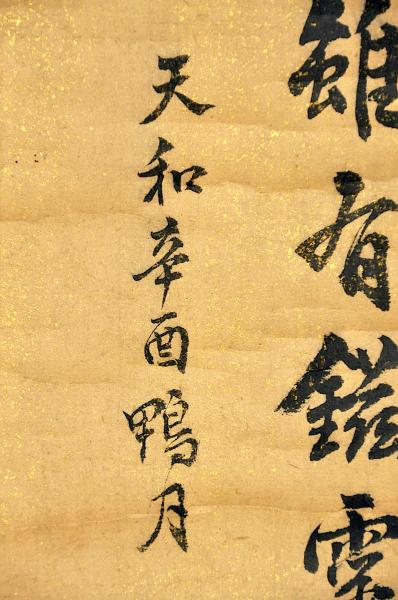 雖有鎡
天和辛酉鴨月